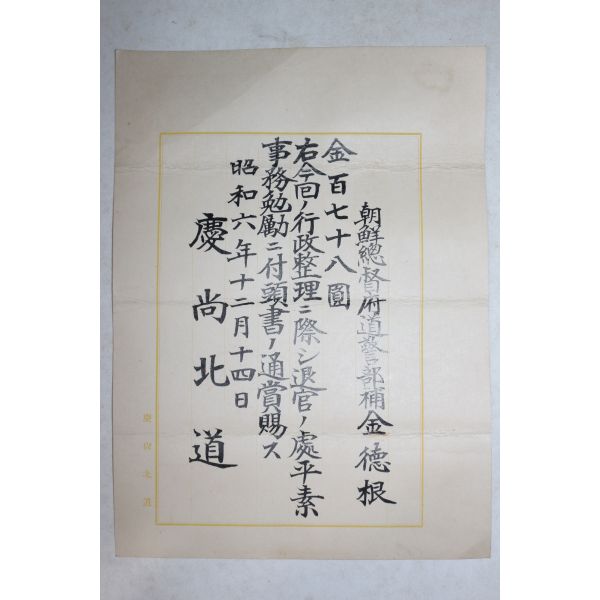 朝鮮總督府道警部補金德根
金百七十八圓
右今回ノ行政整理ニ際シ退官ノ處平素
事務勉勵ニ付頭書ノ通賞賜ス
昭和六年十二月十四日
慶尚北道
慶尚北道